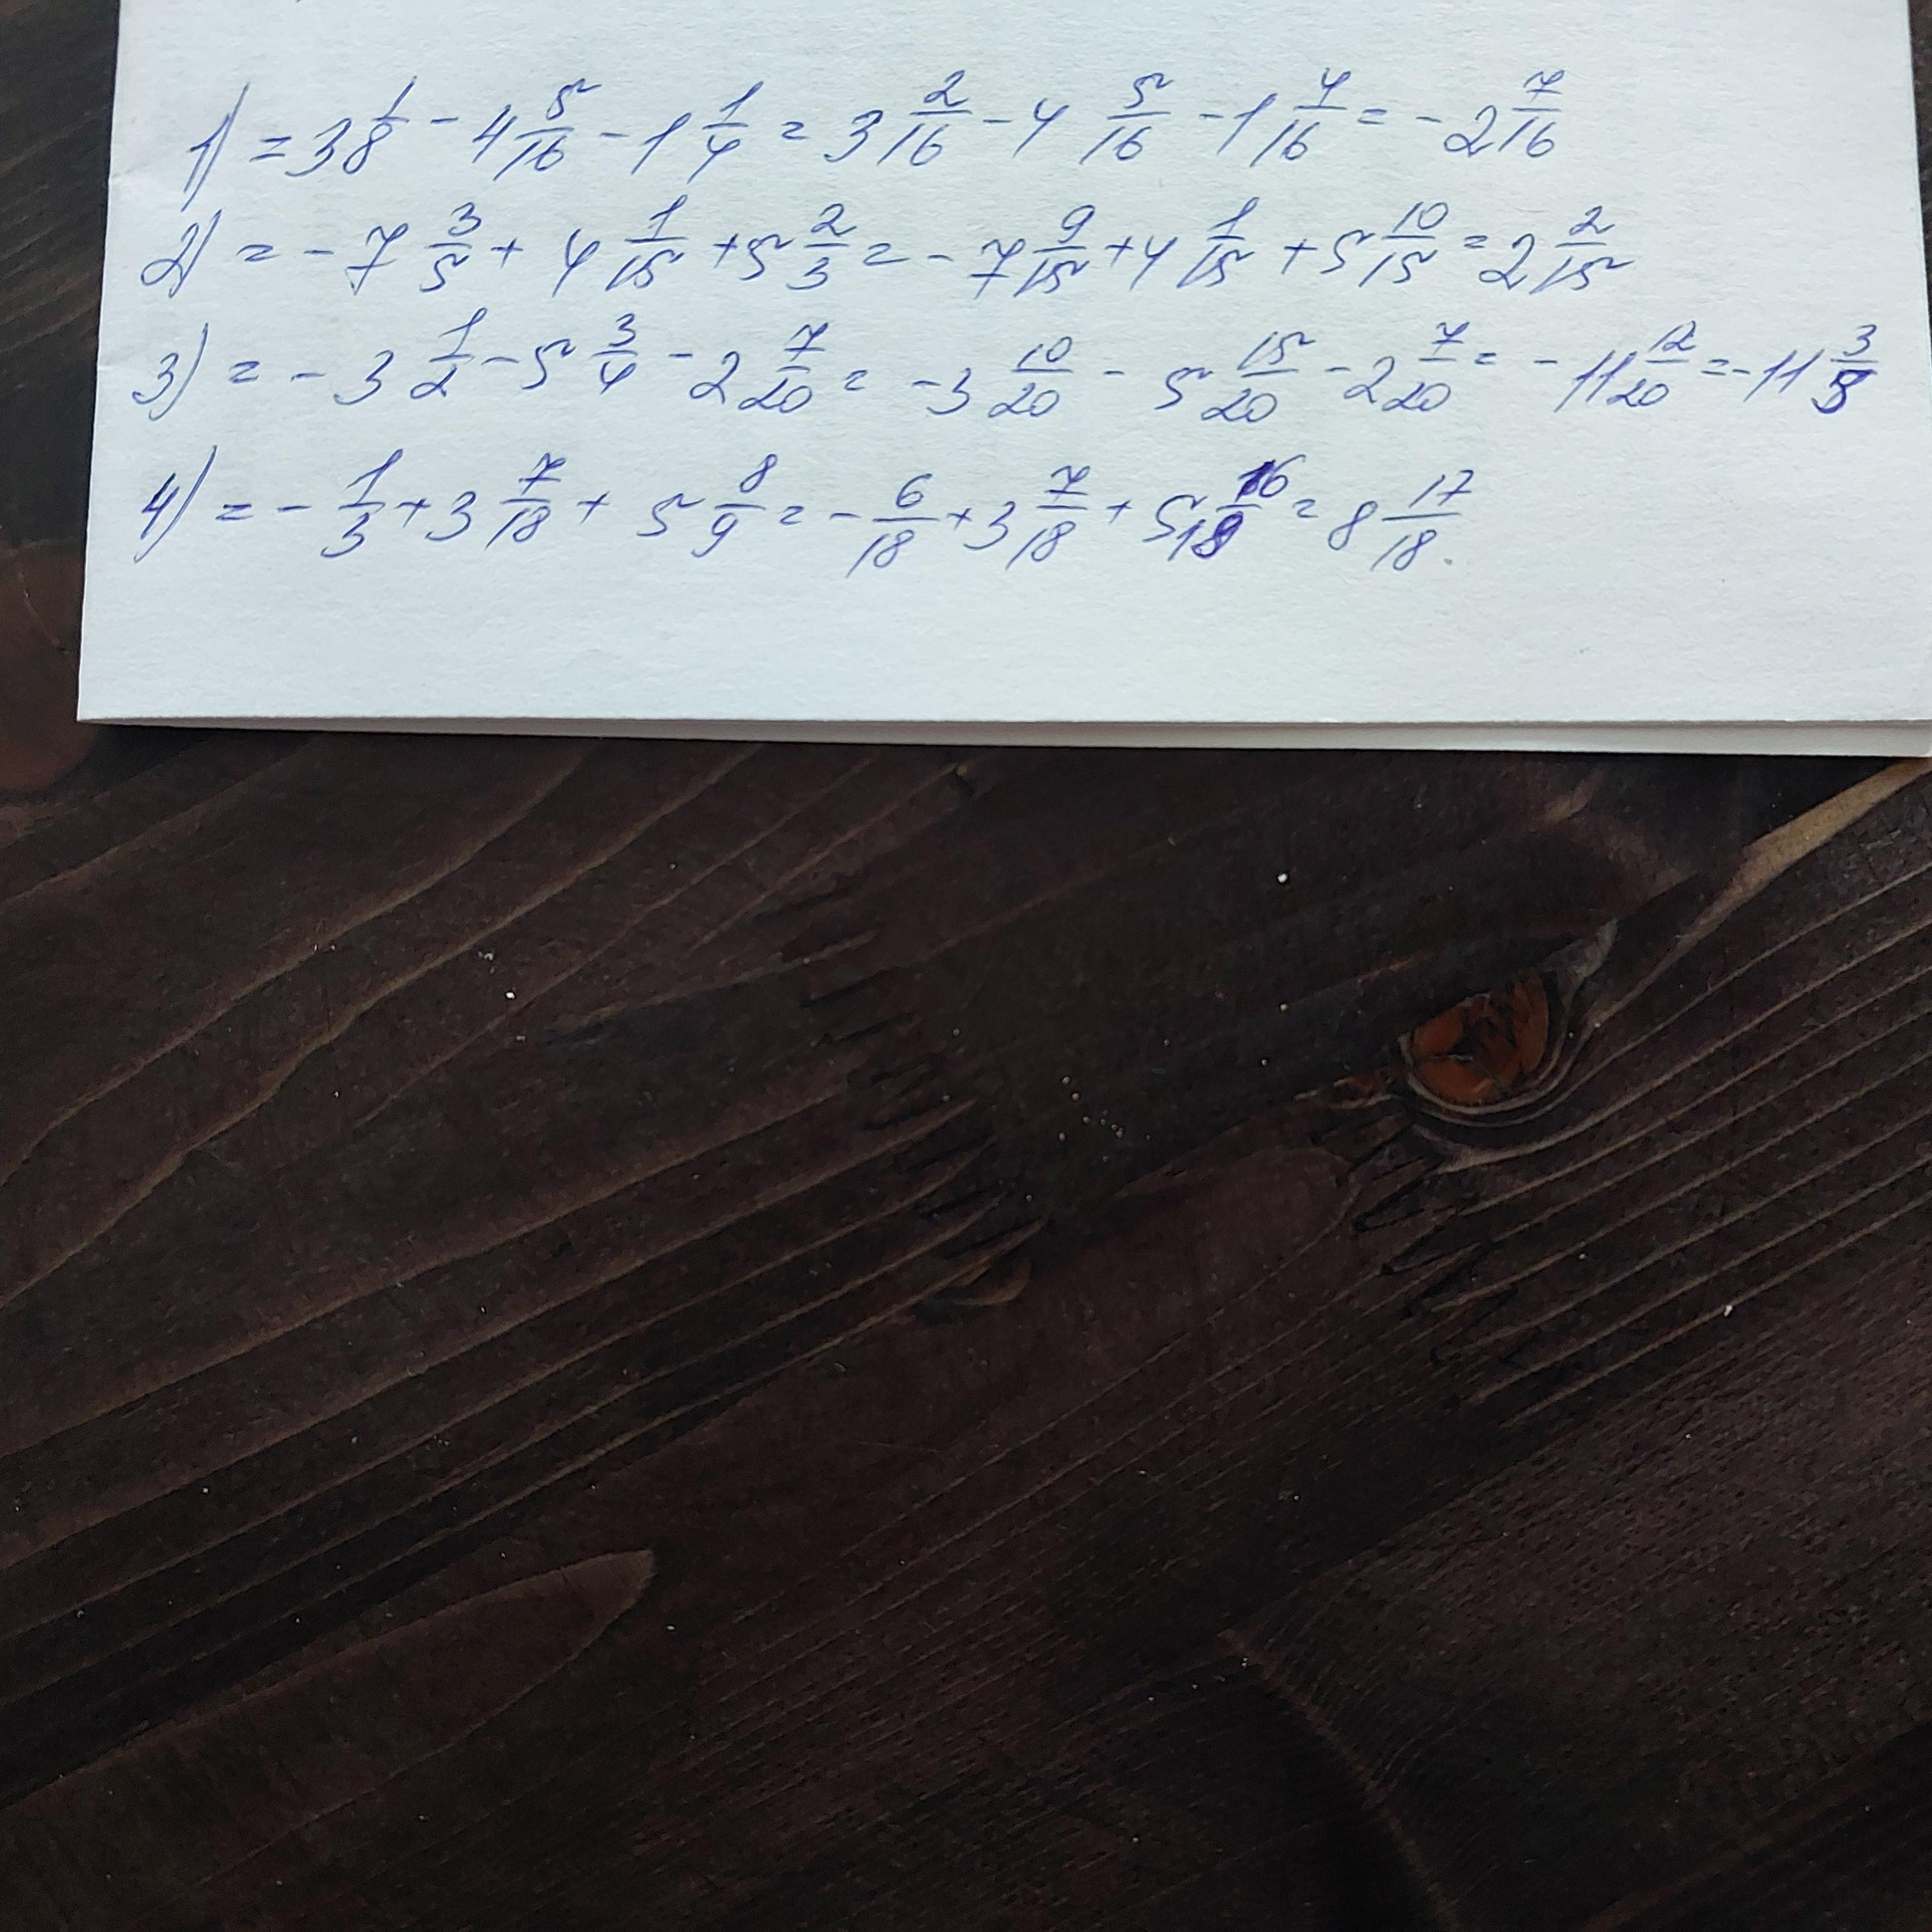 1) = 3 1/8 - 4 5/16 - 1 1/4 = 3 2/16 - 4 5/16 - 1 4/16 = - 2 7/16
2) = - 7 3/5 + 4 1/15 + 5 2/3 = - 7 9/15 + 4 1/15 + 5 10/15 = 2 2/15
3) = - 3 1/2 - 5 3/4 - 2 7/20 = - 3 10/20 - 5 15/20 - 2 7/20 = - 11 12/20 = - 11 3/5
4) = - 1/3 + 3 7/18 + 5 8/9 = - 6/18 + 3 7/18 + 5 16/18 = 8 17/18.